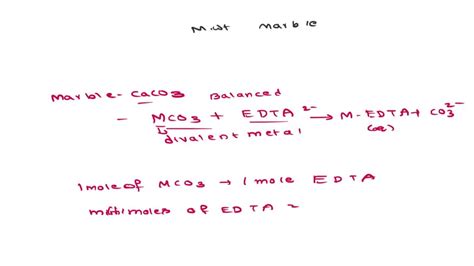 M.wt marble
Marble - CaCO3 Balanced
- MCO3 + EDTA 2- → M-EDTA + CO3 2-
divalent metal (aq)
1 mole of MCO3 → 1 mole EDTA
moles of EDTA =